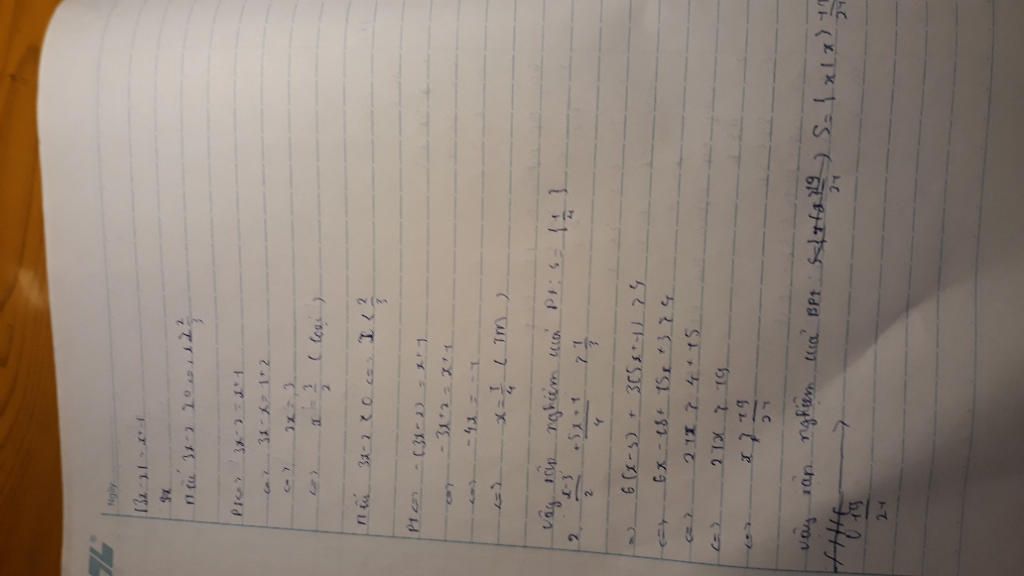 Ngày
|3x-2| = x+1
3x
Nếu 3x-2 ≥ 0 <=> x ≥ 2/3
Pt<=> 3x-2 = x+1
<=> 3x-x = 1+2
<=> 2x = 3
<=> x = 3/2 (loại)
Nếu 3x-2 < 0 <=> x < 2/3
Pt<=> -(3x-2) = x+1
<=> -3x+2 = x+1
<=> -4x = -1
<=> x = 1/4 (TM)
Vậy tập nghiệm của Pt: S = {1/4}
2. x-3/2 + 5x+1/4 ≥ 1/3
=> 6(x-3) + 3(5x+1) ≥ 4
<=> 6x - 18 + 15x + 3 ≥ 4
<=> 21x ≥ 4 + 15
<=> 21x ≥ 19
<=> x ≥ 19/21
Vậy tập nghiệm của BPt: S = {x | x ≥ 19/21
19/21